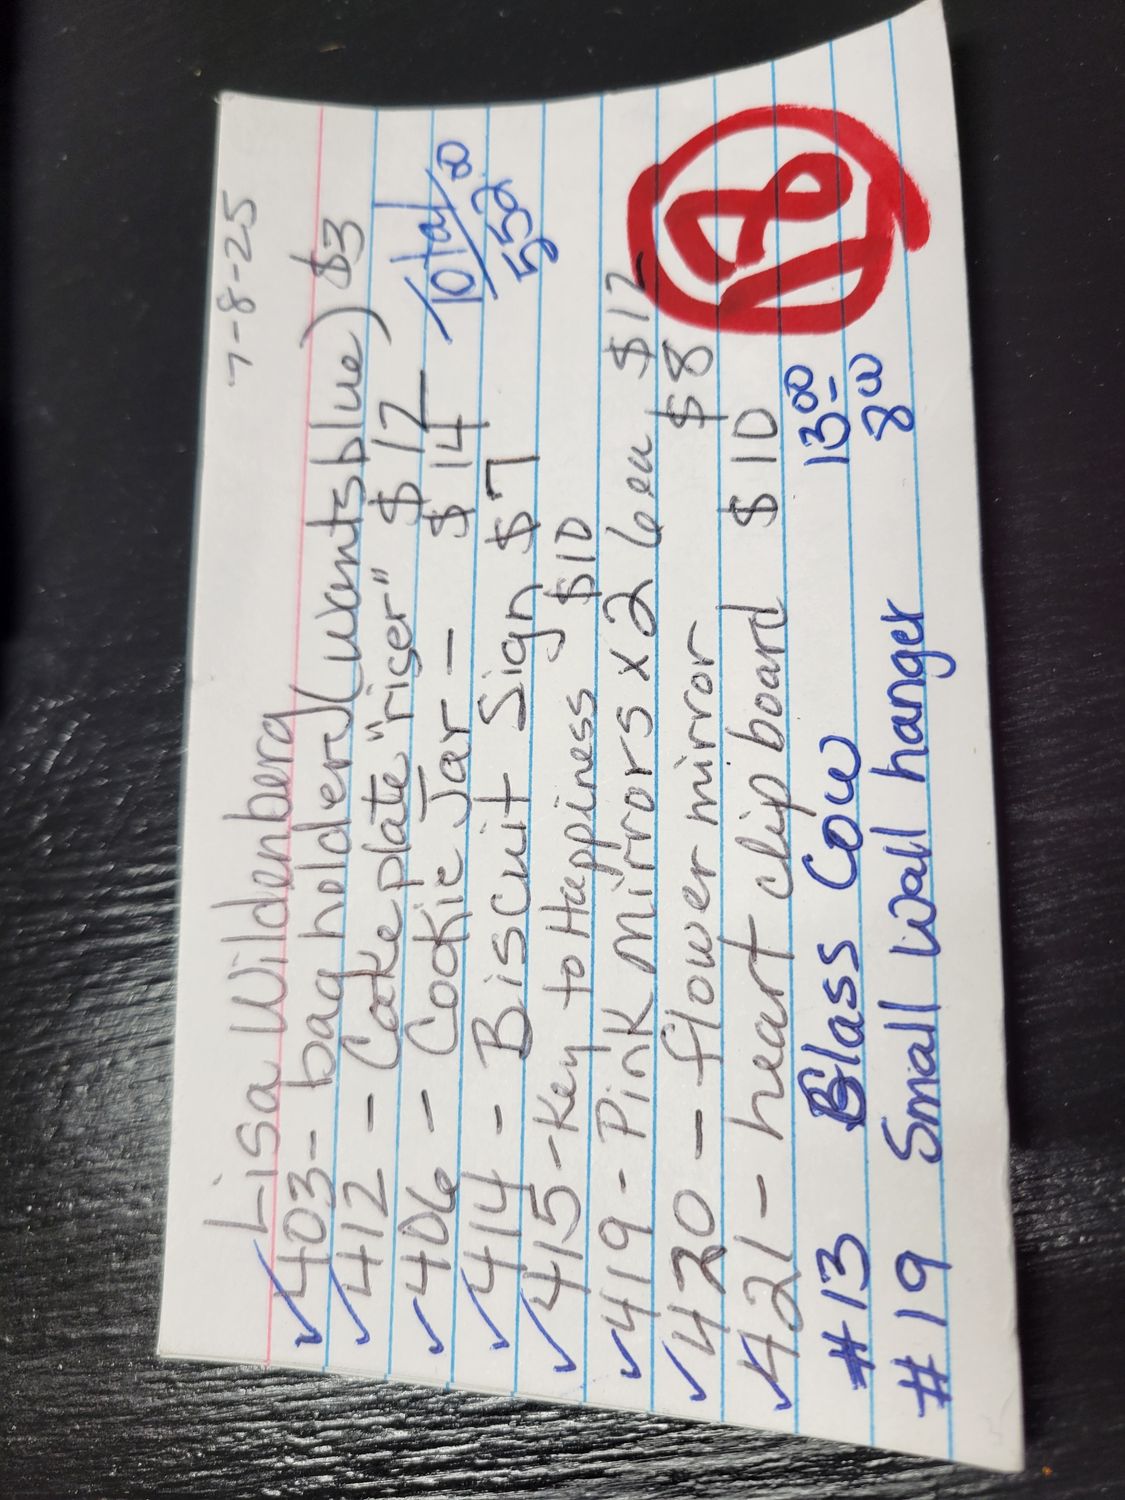 7-8-25
Lisa Wildenberg
403- bag holder (wants blue) $3
412 - Cake plate "riser" $12
406 - Cookie Jar - $14
Total
552 00
414 - Biscuit Sign $7
415 - Key to Happiness $10
419 - Pink Mirrors x 2 6 ea $12
420 - flower mirror $8
421 - heart clip board $10
#13 Blass Cow 13 00
#19 Small wall hanger 8 00